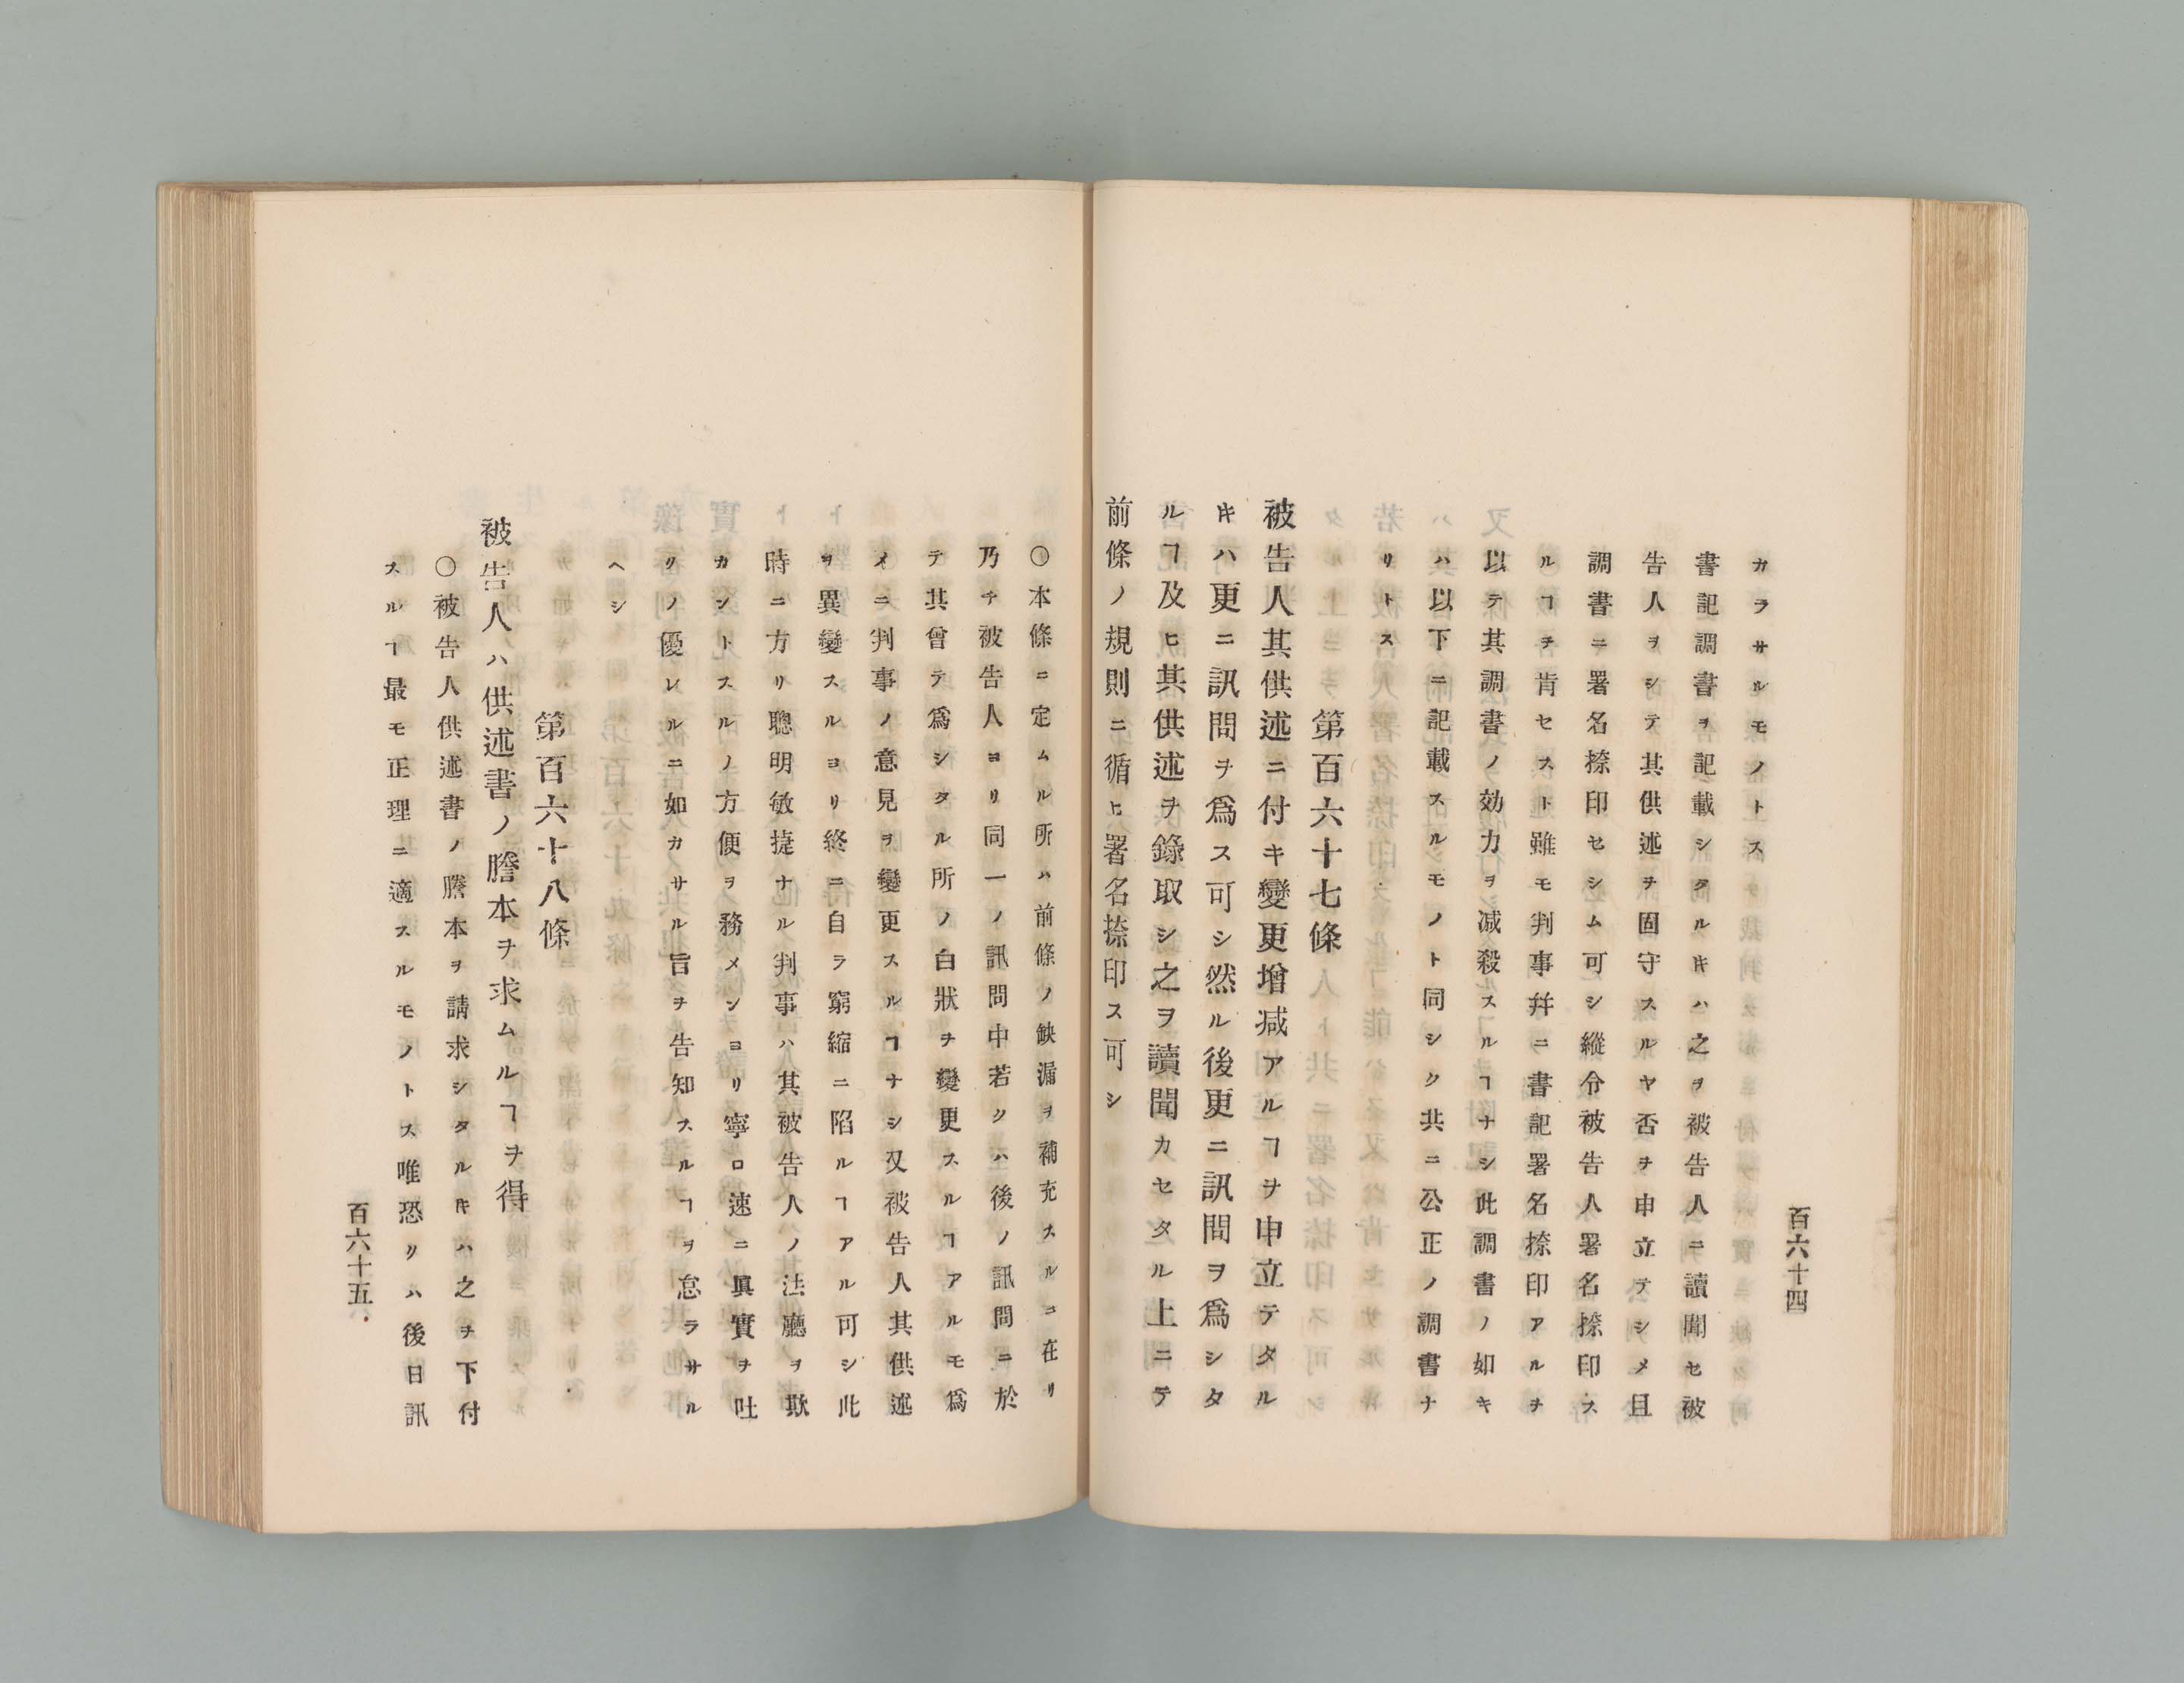 百六十四
カラサルモノトス
書記調書ヲ記載シタルトキハ之ヲ被告人ニ讀聞セ被
告人ヲシテ其供述ヲ固守スルヤ否ヲ申立テシメ且
調書ニ署名捺印セシム可シ縱令被告人署名捺印ス
ルヿヲ肯セスト雖モ判事幷ニ書記署名捺印アルヲ
以テ其調書ノ効力ヲ减殺スルヿナシ此調書ノ如キ
ハ以下ニ記載スルモノト同シク共ニ公正ノ調書ナ
リトス
第百六十七條
被告人其供述ニ付キ變更增减アルヿヲ申立テタル
𪜈ハ更ニ訊問ヲ爲ス可シ然ル後更ニ訊問ヲ爲シタ
ルヿ及ヒ其供述ヲ錄取シ之ヲ讀聞カセタル上ニテ
前條ノ規則ニ循ヒ署名捺印ス可シ
〇本條ニ定ムル所ハ前條ノ缺漏ヲ補充スルニ在リ
乃チ被告人ヨリ同一ノ訊問中若クハ後ノ訊問ニ於
テ其曾テ爲シタル所ノ白狀ヲ變更スルヿアルモ爲
メニ判事ノ意見ヲ變更スルヿナシ又被告人其供述
ヲ異變スルヨリ終ニ自ラ窮縮ニ陷ルヿアル可シ此
時ニ方リ聰明敏捷ナル判事ハ其被告人ノ法廳ヲ欺
カントスルノ方便ヲ務メンヨリ寧ロ速ニ眞實ヲ吐
クノ優レルニ如カサル旨ヲ告知スルヿヲ怠ラサル
ヘシ
第百六十八條
被告人ハ供述書ノ謄本ヲ求ムルヿヲ得
〇被告人供述書ノ謄本ヲ請求シタル𪜈ハ之ヲ下付
スルヿ最モ正理ニ適スルモノトス唯恐クハ後日訊
百六十五